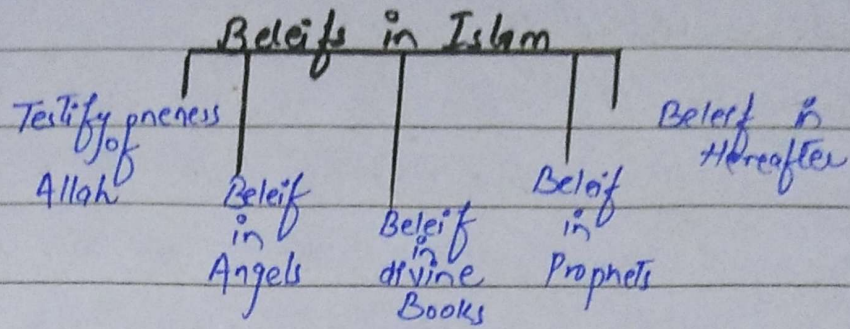 Beleifs in Islam
Testify oneness
of
Allah
Beleif
in
Angels
Beleif
in
divine
Books
Beleif
in
Prophets
Beleif in
Hereafter